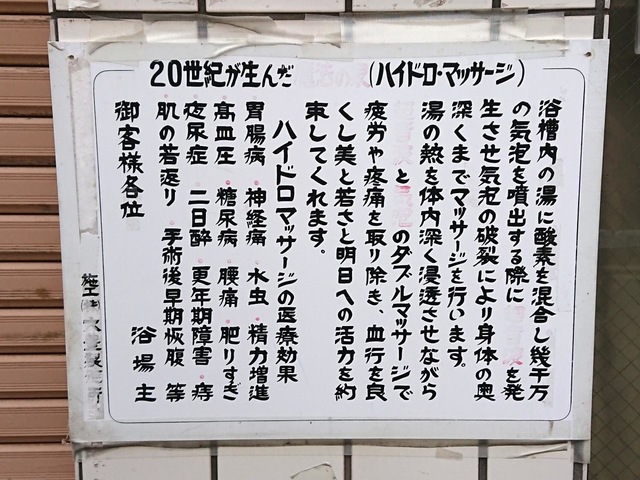 20世紀が生んだ (ハイドロ・マッサージ)
浴槽内の湯に酸素を混合し幾千万
の気泡を噴出する際に を発
生させ気泡の破裂により身体の奥
深くまでマッサージを行います。
湯の熱を体内深く浸透させながら
と のダブルマッサージで
疲労や疼痛を取り除き、血行を良
くし美と若さと明日への活力を約
束してくれます。
ハイドロマッサージの医療効果
胃腸病・神経痛・水虫・精力増進
高血圧・糖尿病・腰痛・肥りすぎ
夜尿症・二日酔・更年期障害・痔
肌の若返り・手術後早期恢腹 等
御客様各位
浴場主